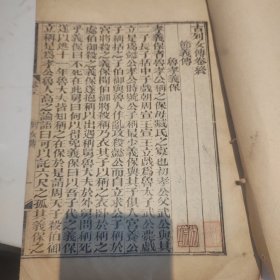 古列女傳卷五
節義傳
魯孝義保
孝義保者魯孝公稱之保母臧氏之寡也初孝公父武公與
其二子長子括中子戲朝周宣王宣王立戲為魯太子武公薨戲
立是為懿公孝公時號公子稱最少義保與其子俱入宮養公
子稱括之子伯御與魯人作亂攻殺懿公而自立求公子稱於
宮將殺之義保聞伯御將殺稱乃衣其子以稱之衣臥於稱之
處伯御殺之義保遂抱稱以出遇稱舅魯大夫於外舅問稱死
乎義保曰不死在此舅曰何以得免義保曰以吾子代之義保
遂以逃十一年魯大夫皆知稱之在保於是請周天子殺伯御
立稱是為孝公魯人高之論語曰可以託六尺之孤其義保之